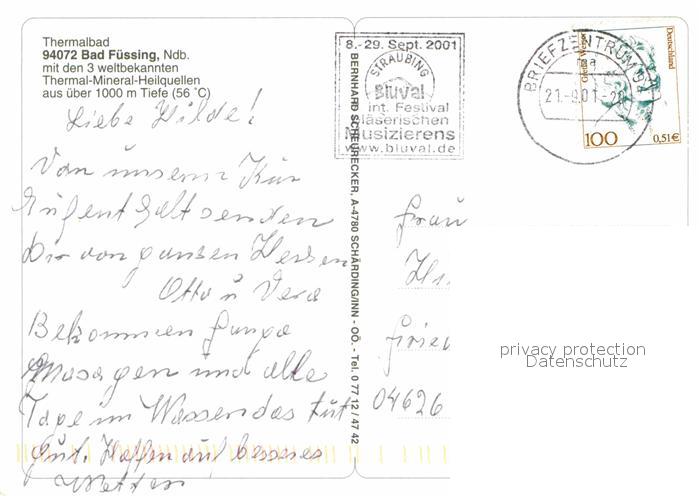 Thermalbad
94072 Bad Füssing, Ndb.
mit den 3 weltbekannten
Thermal-Mineral-Heilquellen
aus über 1000 m Tiefe (56 °C)
Liebe Hilde!
Von unserm Kur
senden
Dir von ganzen Herzen
Otto u Vera
Bekommen
Masagen und alle
Tage im Wasser das tut
gut. Hoffen auf besseres
Wetter
BERNHARD SCHEURECKER, A-4780 SCHÄRDING/INN - OÖ. - Tel. 0 77 12 / 47 42
8.-29. Sept. 2001
STRAUBING
Bluval
int. Festival
bläserischen
Musizierens
www.bluval.de
BRIEFZENTRUM 94
ma
21.-9.01.-20
Deutschland
100
0,51€
Frau
04626
privacy protection
Datenschutz